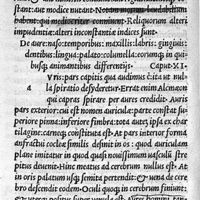 aut modice nutant Notam morum laudabilium
habent: qui mediocriter conniuent. Reliquorum alteri
impudentiæ: alteri inconstantiæ indices sunt.
De aure: naso: temporibus: maxillis: labris: gingiuis:
dentibus: lingua: palato: columella: eorumq; in quibus
busq; animantibus differentiis. Caput. XI.
Vris: pars capitis qua audimus è: ita ut nulla
spiratio desyderetur. Errat enim Alcmæon
qui capras spirare per aures credidit. Auris
pars exterior: cui est nomen auriculæ: parte constat superiori
pinna: inferiore fibra. Atque tota ipsa ex cartilagine:
carneq; constituta est. At pars interior in modum
anfractu cocleæ similis desinit in os: quod auriculam
plane imitatur in quod quasi nouissimum uasculũ strepitus
deuenit. Hinc meatus ad cerebrum nullus est. At
in oris palatum usq; semita pertendit: & uena de cerebro
descendit eodem. Oculi quoq; in cerebrum finiunt:
& uterq; positus super uenula est. Aures homini tantum